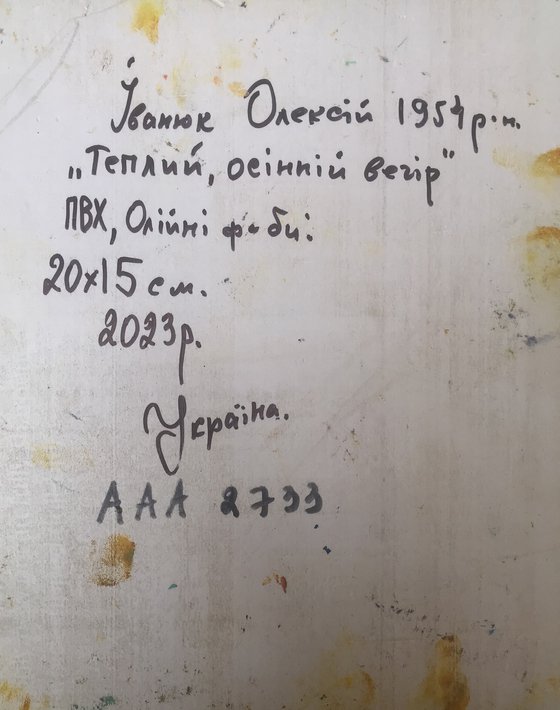 Іванюк Олексій 1954 р.н.
„Теплий, осінній вечір"
ПВХ, Олійні фарби.
20х15 см.
2023р.
Україна.
ААА 2733